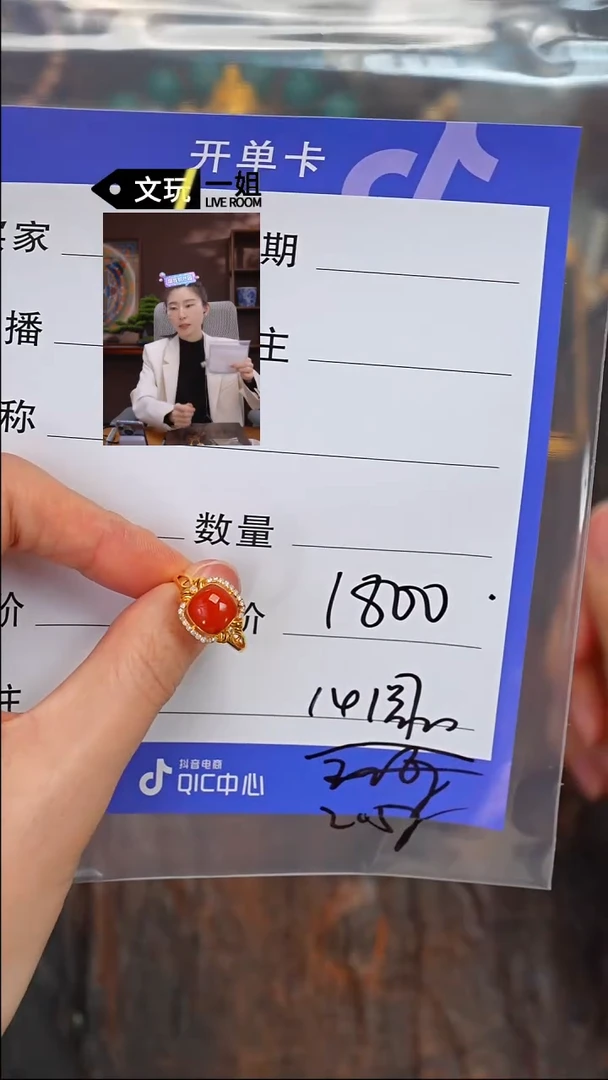 开单卡
文玩一姐
LIVE ROOM
家
期
播
主
称
数量
价
价
1800.
主
抖音电商
QIC中心